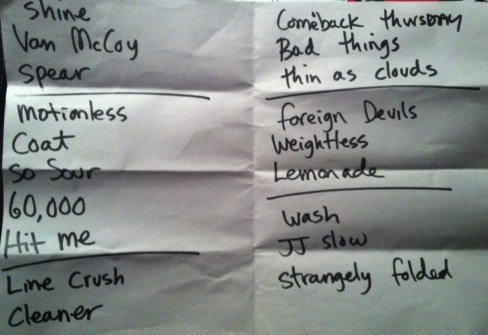 Shine
Van McCoy
Spear
Motionless
Coat
So Sour
60,000
Hit me
Line Crush
Cleaner
Comeback thursday
Bad things
thin as clouds
foreign Devils
Weightless
Lemonade
Wash
JJ slow
Strangely folded